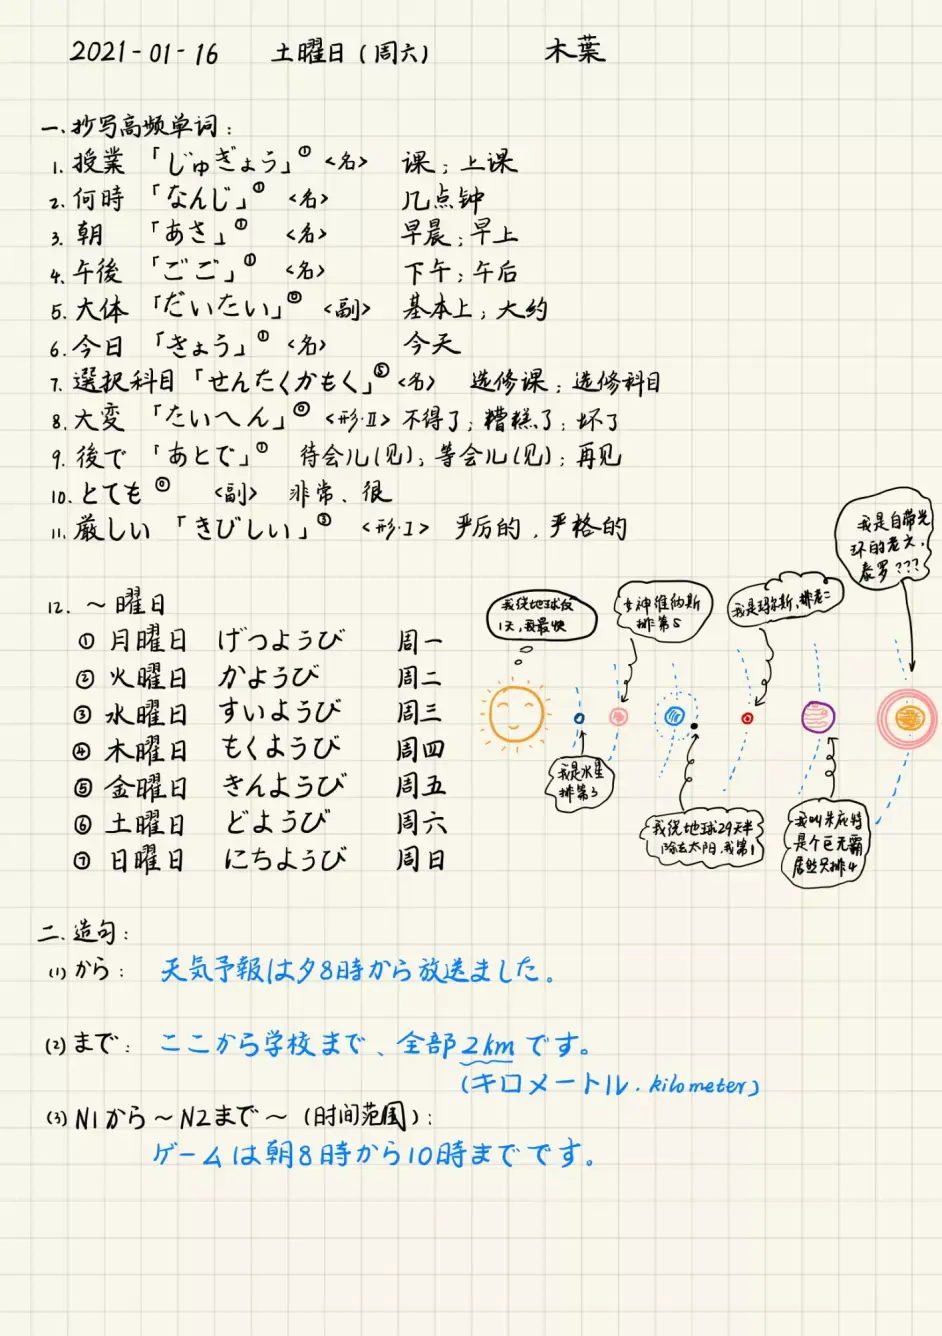 2021-01-16 土曜日(周六) 木葉
一.抄写高频单词:
1. 授業 「じゅぎょう」① <名> 课;上课
2. 何時 「なんじ」① <名> 几点钟
3. 朝 「あさ」① <名> 早晨;早上
4. 午後 「ごご」① <名> 下午;午后
5. 大体 「だいたい」⓪ <副> 基本上;大约
6. 今日 「きょう」① <名> 今天
7. 選択科目 「せんたくかもく」⑤ <名> 选修课;选修科目
8. 大変 「たいへん」⓪ <形·II> 不得了;糟糕了;坏了
9. 後で 「あとで」① 待会儿(见);等会儿(见);再见
10. とても ⓪ <副> 非常、很
11. 厳しい 「きびしい」③ <形·I> 严厉的,严格的
12. ~曜日
① 月曜日 げつようび 周一
② 火曜日 かようび 周二
③ 水曜日 すいようび 周三
④ 木曜日 もくようび 周四
⑤ 金曜日 きんようび 周五
⑥ 土曜日 どようび 周六
⑦ 日曜日 にちようび 周日
我绕地球仅
1天,我最快
女神维纳斯
排第5
我是玛尔斯,排老二
我是自带光
环的老六,
泰罗???
我是水星
排第3
我绕地球29天半
除去太阳,我第1
我叫朱庇特
是个巨无霸
居然只排4
二.造句:
(1) から: 天気予報は夕8時から放送ました。
(2) まで: ここから学校まで、全部2kmです。
(キロメートル·kilometer)
(3) N1から~N2まで~(时间范围):
ゲームは朝8時から10時までです。